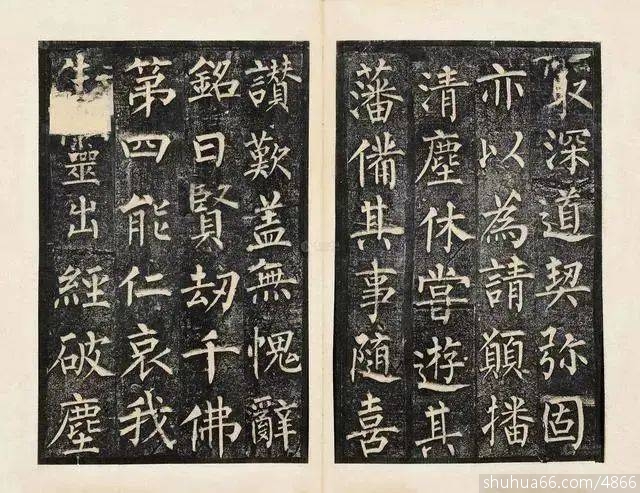 最深道契弥固
亦以為請顛播
清塵休嘗遊其
藩備其事隨喜
讃歎盖無愧辭
銘曰賢劫千佛
第四能仁哀我
生靈出經破塵
shuhua66.com/4866